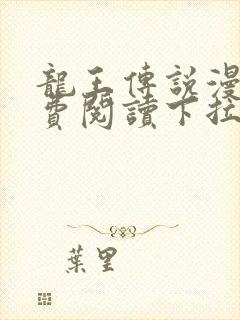 龍王傳說漫
費閱讀下拉
葉里